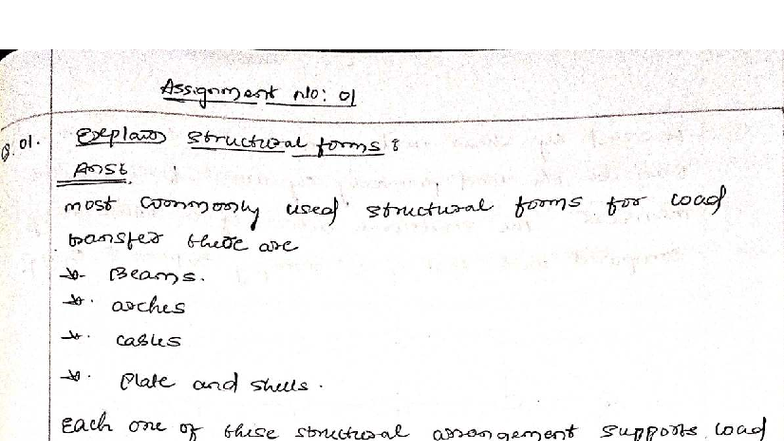 Assignment No: 01
Q.01. Explain structural forms:
Ans:
most commonly used structural forms for load
transfer there are
→ Beams.
→ arches
→ cables
→ Plate and shells.
Each one of these structural arrangement supports load